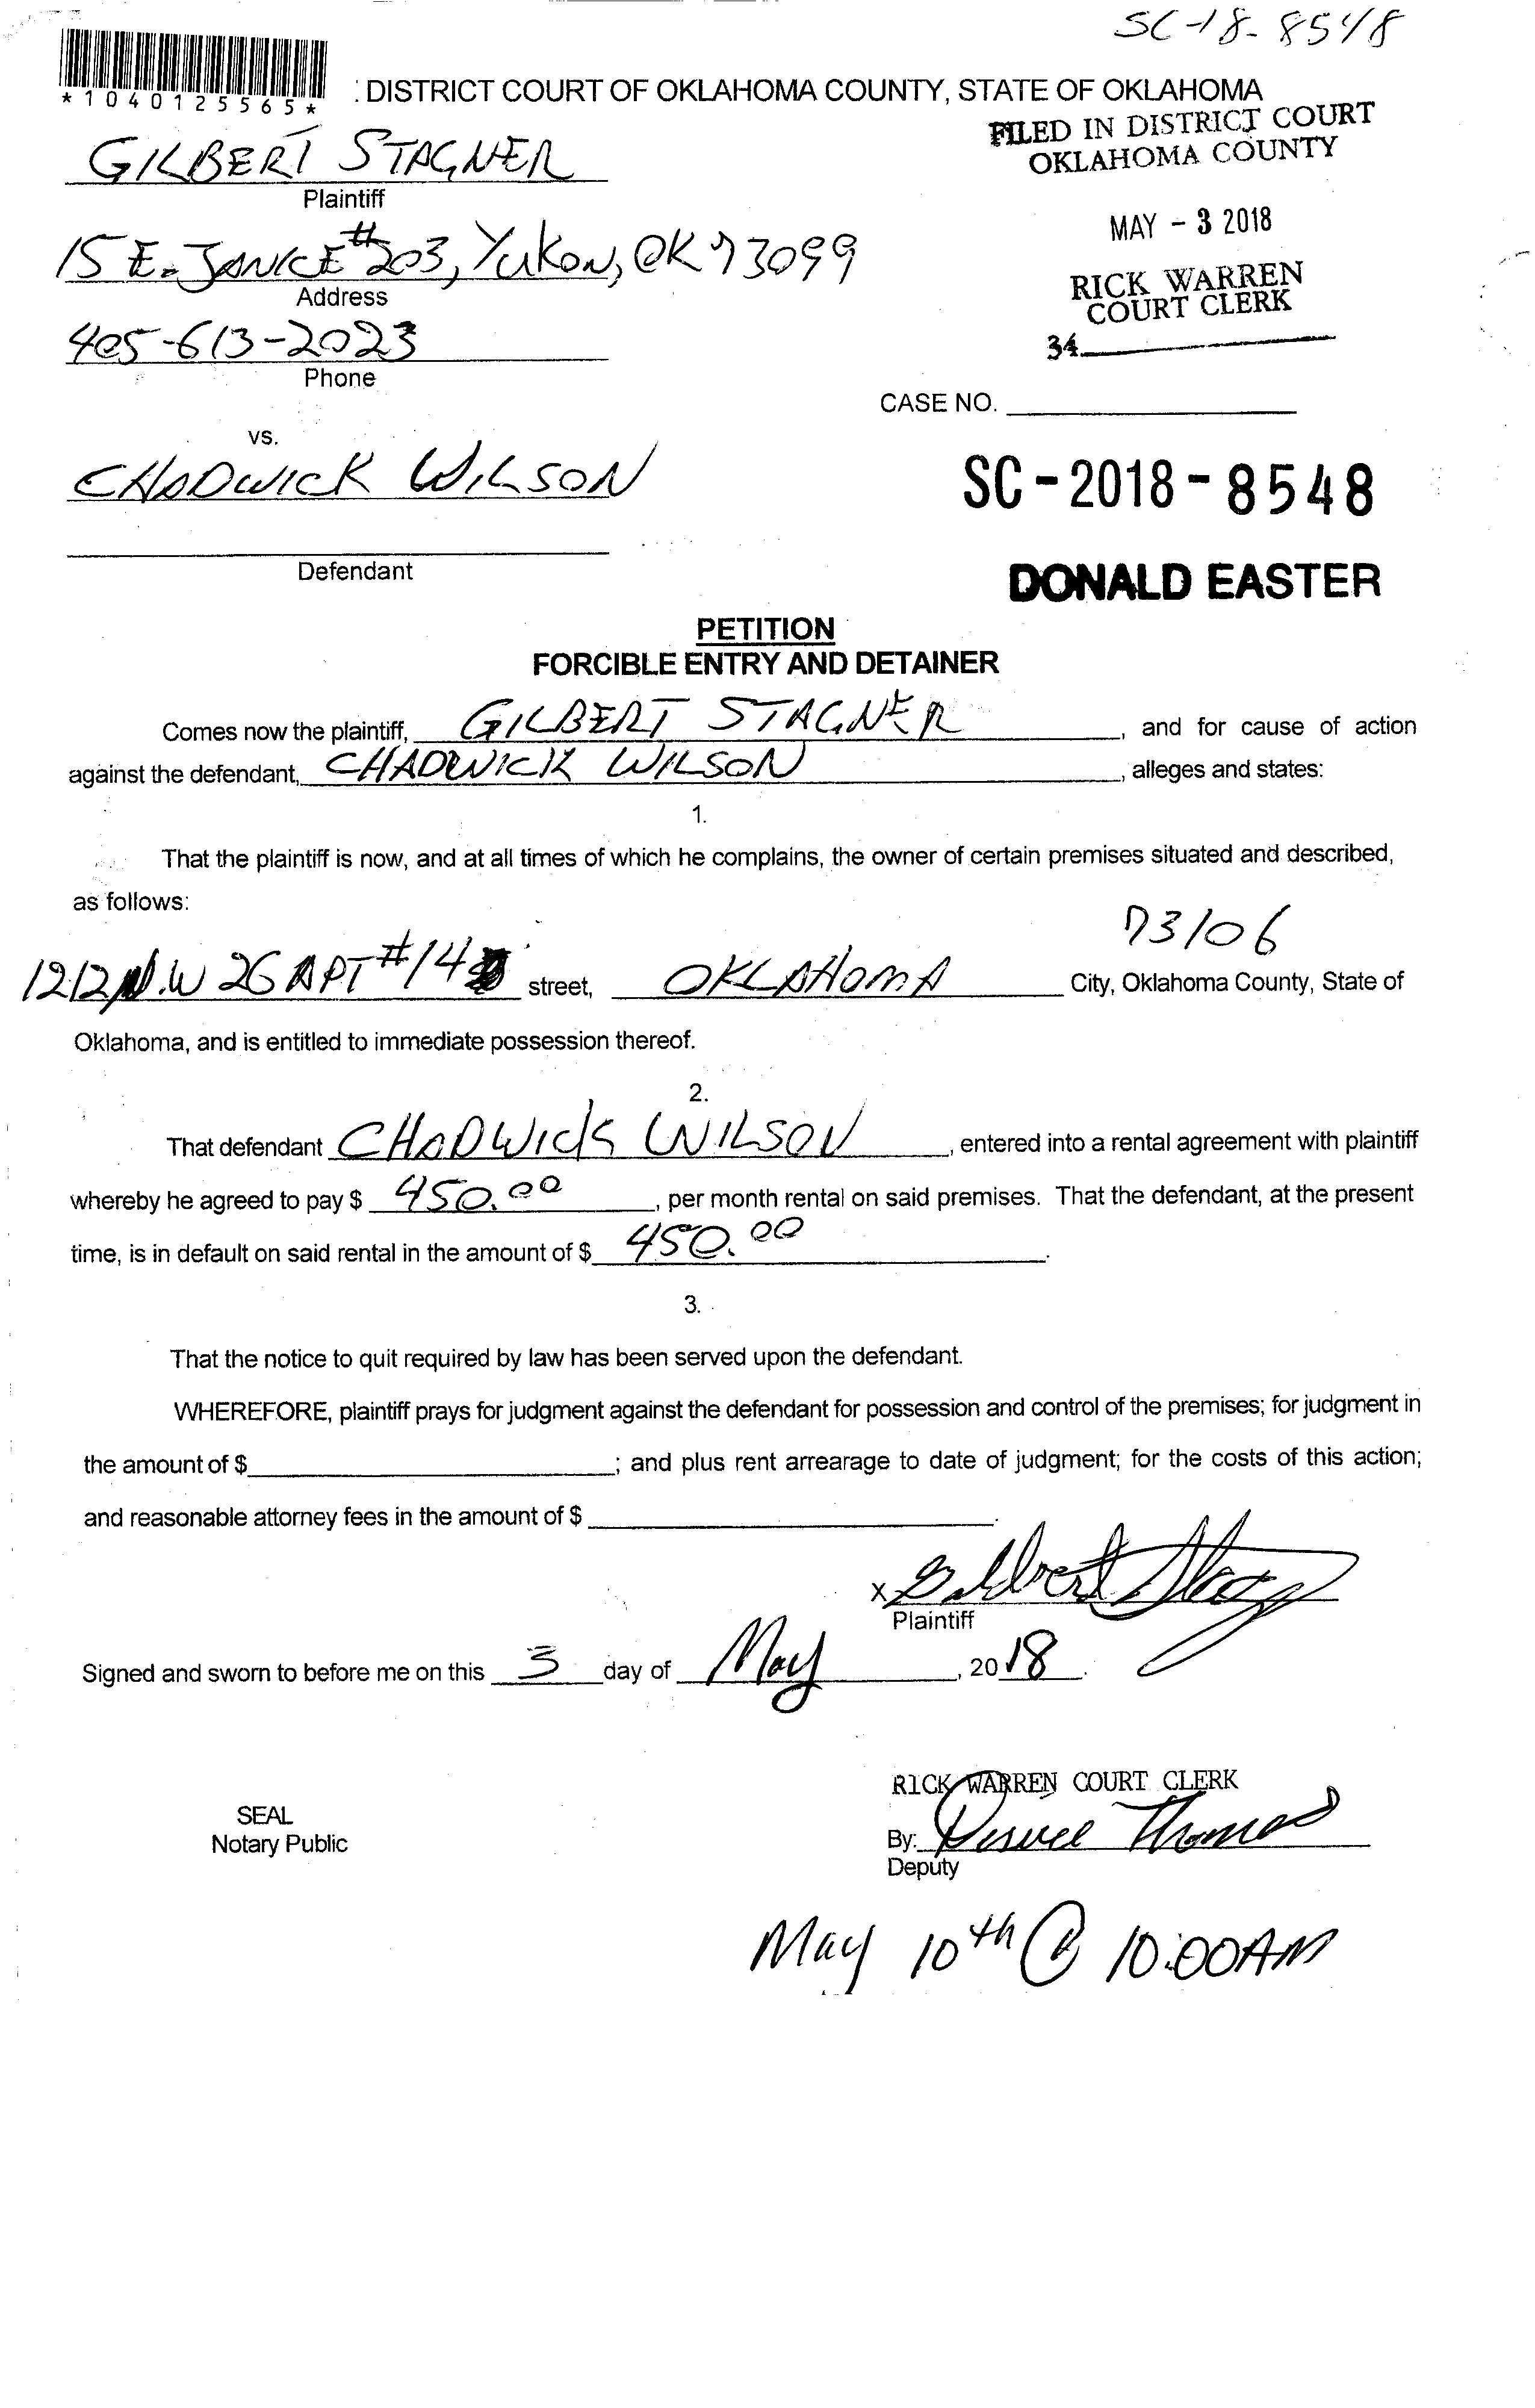 SC-18-8548
*1040125565*
: DISTRICT COURT OF OKLAHOMA COUNTY, STATE OF OKLAHOMA
FILED IN DISTRICT COURT
OKLAHOMA COUNTY
GILBERT STAGNER
Plaintiff
MAY - 3 2018
15 E. JANICE #203, Yukon, OK 73099
Address
RICK WARREN
COURT CLERK
405-613-2023
34
Phone
CASE NO.
vs.
CHADWICK WILSON
SC-2018-8548
Defendant
DONALD EASTER
PETITION
FORCIBLE ENTRY AND DETAINER
Comes now the plaintiff, GILBERT STAGNER, and for cause of action
against the defendant, CHADWICK WILSON, alleges and states:
1.
That the plaintiff is now, and at all times of which he complains, the owner of certain premises situated and described,
as follows:
73106
1212 N.W 26 APT #14 street, OKLAHOMA City, Oklahoma County, State of
Oklahoma, and is entitled to immediate possession thereof.
2.
That defendant CHADWICK WILSON, entered into a rental agreement with plaintiff
whereby he agreed to pay $ 450.00, per month rental on said premises. That the defendant, at the present
time, is in default on said rental in the amount of $ 450.00.
3.
That the notice to quit required by law has been served upon the defendant.
WHEREFORE, plaintiff prays for judgment against the defendant for possession and control of the premises; for judgment in
the amount of $ ; and plus rent arrearage to date of judgment; for the costs of this action;
and reasonable attorney fees in the amount of $ .
X Gilbert Stagner
Plaintiff
Signed and sworn to before me on this 3 day of May, 2018.
RICK WARREN COURT CLERK
SEAL
Notary Public
By: Thomas
Deputy
May 10th @ 10:00AM